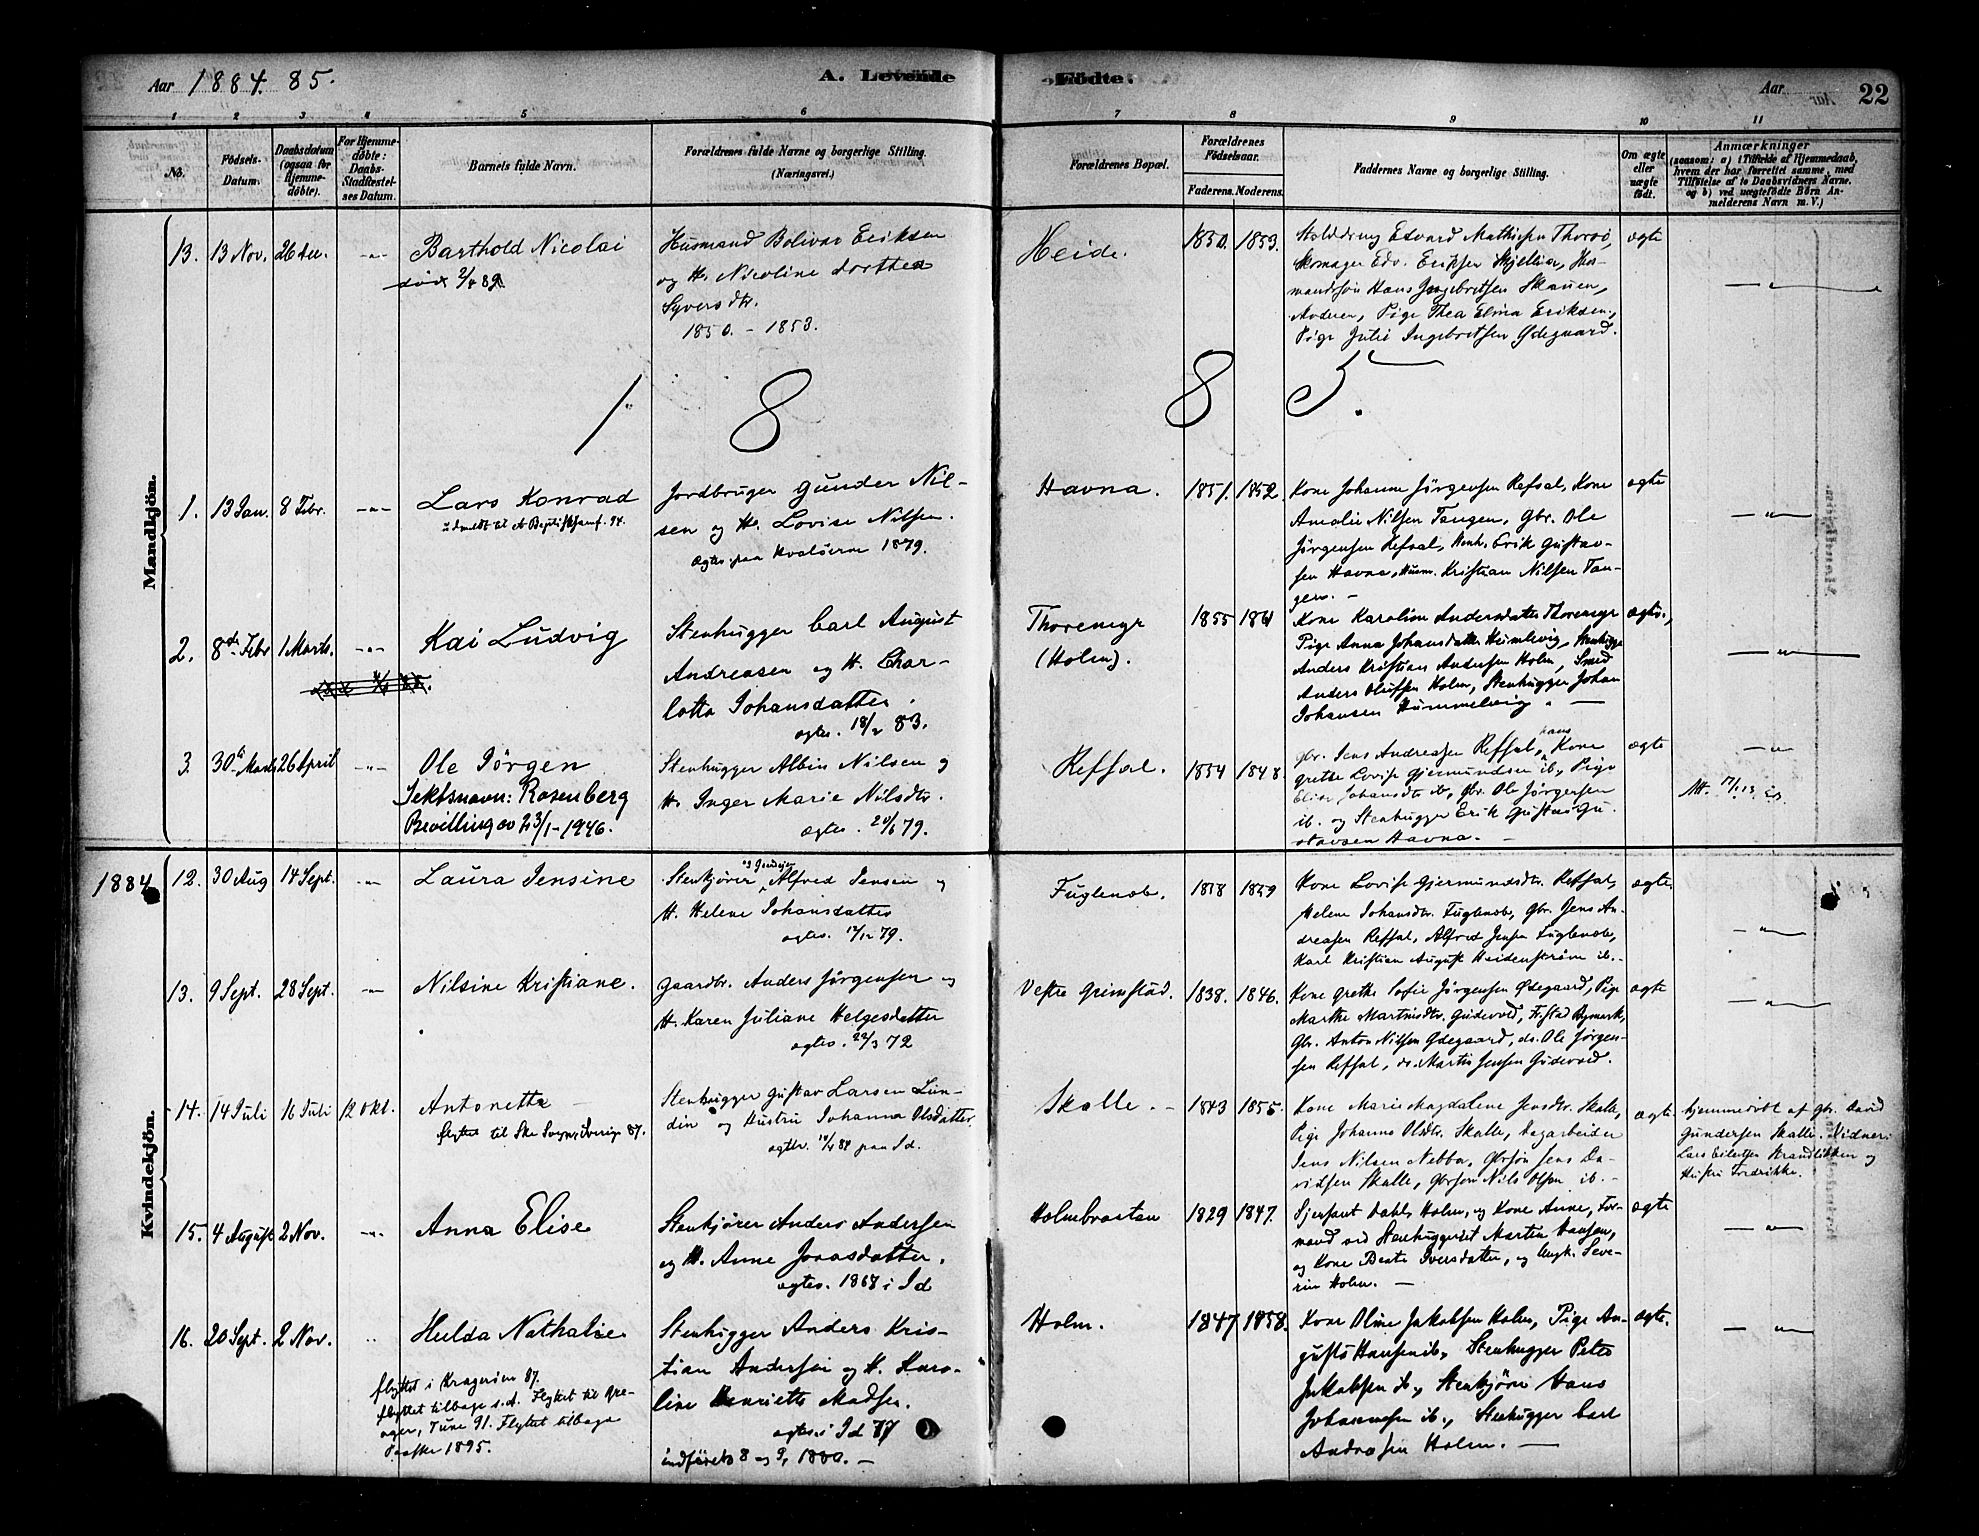 Aar 1884. 85.
A. Levende Födte.
Aar 22
1 2 3 4 5 6 7 8 9 10 11
No.
Födsels-Datum.
Daabsdatum (ogsaa for Hjemme-döbte).
For Hjemme-döbte: Daabs-Stadfæstel-ses Datum.
Barnets fulde Navn.
Forældrenes fulde Navne og borgerlige Stilling.
(Næringsvei.)
Forældrenes Bopæl.
Forældrenes Födselsaar.
Faderens. Moderens.
Faddernes Navne og borgerlige Stilling.
Om ægte eller uægte födt.
Anmærkninger
(saasom: a) i Tilfælde af Hjemmedaab,
hvem der har forrettet samme, med
Tilföielse af to Daabsvidners Navne,
og b) ved uægtefödte Börn An-
melderens Navn m. V.)
Mandkjön.
13. 13 Nov. 26 Dec. -"- Barthold Nicolai
død 2/4 89
Husmand Bolivar Eriksen
og H. Nicoline Dorthea
Syversdtr.
1850. - 1853.
Heide. 1850. 1853.
Edvard Mathisen Thorsø,
Skomager Edv. Eriksen
Hans Ingebretsen Skauen,
Pige Thea Elina Eriksen,
Pige Julie Ingebretsen Ødegaard.
ægte
-"-
1885.
1. 13 Jan. 8 Febr. -"- Lars Konrad
udmeldt til Baptistsamf. 94.
Jordbruger Gunder Nil-
sen og H. Lovise Nilsen.
ægtev. paa Hvaløerne 1879.
Havna. 1851. 1852.
Kone Johanne Jørgensen Refsal, Kone
Amalie Nilsen Tangen, Gbr. Ole
Jørgensen Refsal, Stenh. Erik Gustav-
sen Havna, Husm. Kristian Nilsen Tan-
gen. -
ægte
-"-
2. 8de Febr 1 Marts. -"- Kai Ludvig
Stenhugger Carl August
Andreasen og H. Char-
lotte Johansdatter.
ægtev. 18/2 83.
Thoremyr
(Holm).
1855 1861
Kone Karoline Andersdatter Thoremyr
Pige Anna Johansdatter Hummelvig, Stenhugger
Anders Kristian Andersen Holm, Smed
Anders Olufsen Holm, Stenhugger Johan
Johansen Hummelvig. -
ægte.
-"-
3. 30te Marts 26 April -"- Ole Jörgen
Sektsnavn: Rosenberg
Bevilling av 23/1-1946.
Stenhugger Albin Nilsen og
H. Inger Marie Nilsdtr.
ægtev. 20/6 79.
Refsal. 1854 1848.
Gbr. Jens Andreasen Refsal, hans Kone
Grethe Lovise Gjermundsen ib., Pige
Johansdtr ib., Gbr. Ole Jørgensen
ib. og Stenhugger Erik Gustav Gu-
stavsen Havna. -
ægte
-"-
Kvindekjön.
1884
12. 30 Aug 14 Sept. -"- Laura Jensine
Stenkjører og Gaardejer Alfred Jensen og
H. Helene Johansdatter
ægtev. 17/12 79.
Fuglenob. 1858 1859
Kone Lovise Gjermundsdtr. Refsal,
Helene Johansdtr. Fuglenob, Gbr. Jens An-
dreasen Refsal, Alfred Jensen Fuglenob,
Karl Kristian August Heidenstrøm ib. -
ægte.
-"-
13. 9 Sept. 28 Sept. -"- Nilsine Kristiane.
Gaardbr. Anders Jørgensen og
H. Karen Juliane Helgesdatter
ægtev. 22/3 72
Vestre Grimstad. 1838. 1846.
Kone Grethe Sofie Jørgensen Ødegaard, Pige
Marthe Martinsdtr. Gudevold,
Gbr. Anton Nilsen Ødegaard, do. Ole Jørgen-
sen Refsal, do. Martin Jensen Gudevold.
ægte
-"-
14. 14 Juli 16 Juli 12 Okt. Antonette
flyttet til Ske Sogn, Sverige 87.
Stenhugger Gustav Larsen Lun-
din og Hustru Johanna Olsdatter
paa Id.
Skalle. - 1843 1855.
Kone Marie Magdalene Jensdtr. Skalle,
Pige Johanne Olsdtr. Skalle, Dagarbeider
Jens Nilsen Nebba, Gbrsøn Jens Da-
vidsen Skalle, Gbrsøn Nils Olsen ib. -
ægte
hjemmedøbt af Gbr. David
Gundersen Skalle. Vidner:
Lars Eilertsen Strandbakken og
Hustru Fredrikke.
15. 4 August 2 Nov. -"- Anna Elise
Stenkjører Anders Andersen
og H. Anne Jonasdatter.
ægtev. 1867 i Id
Holmbraaten 1829 1847.
Sjersant Dahl, Holm, og Kone Anne, For-
mand ved Stenhuggeriet Martin Hansen,
og Kone Beate Iversdatter, og Ungk. Seve-
rin Holm. -
ægte
-"-
16. 20 Sept. 2 Nov. " Hulda Nathalie
flyttet i Kragerøen 87.
flyttet tilbage s.d. Flyttet til Gre-
aager, Tune 91. Flyttet tilbage
Paaske 1895.
Stenhugger Anders Kris-
tian Andersen og H. Karo-
line Henriette Madsen.
ægtev. i Id 77
indførte 8 og 9, 1880. -
Holm. 1847 1858.
Kone Oline Jakobsen Holm, Pige Au-
gusta Hansen ib., Stenhugger Peter
Jakobsen ib., Stenkjører Hans
Johannesen ib., Stenhugger Carl
Andreasen Holm. -
ægte.
-"-